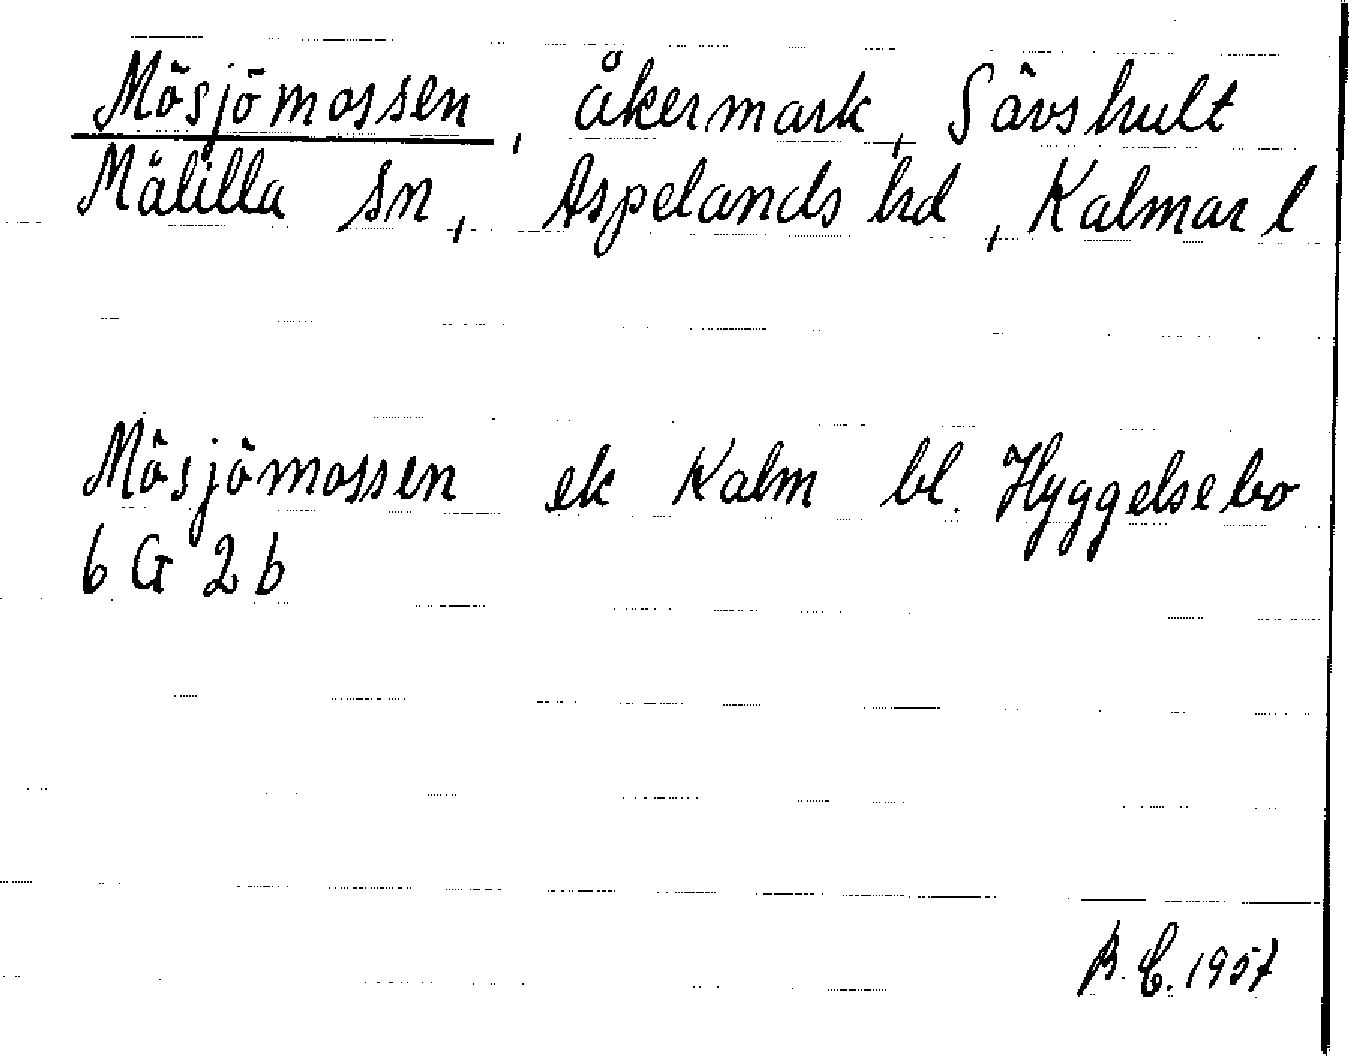 Mösjömossen, åkermark, Sävshult
Målilla sn, Aspelands hd, Kalmar l
Mösjömossen ek Kalm bl. Hyggelsebo
6 G 2 b
B. C. 1957